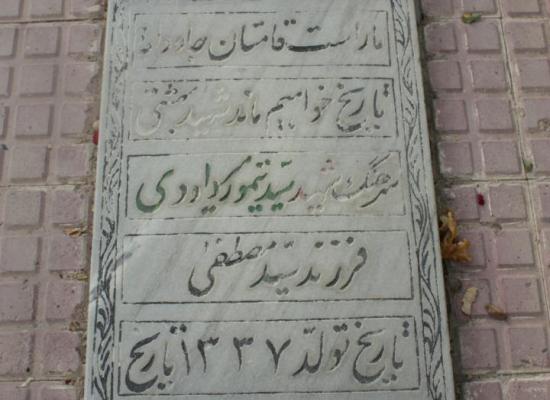 ما راست قامتان جاودانه
تاریخ خواهیم ماند شهید بهشتی
سرهنگ شهید سید تیمور کیاودی
فرزند سید مصطفی
تاریخ تولد ۱۳۳۷ تاریخ